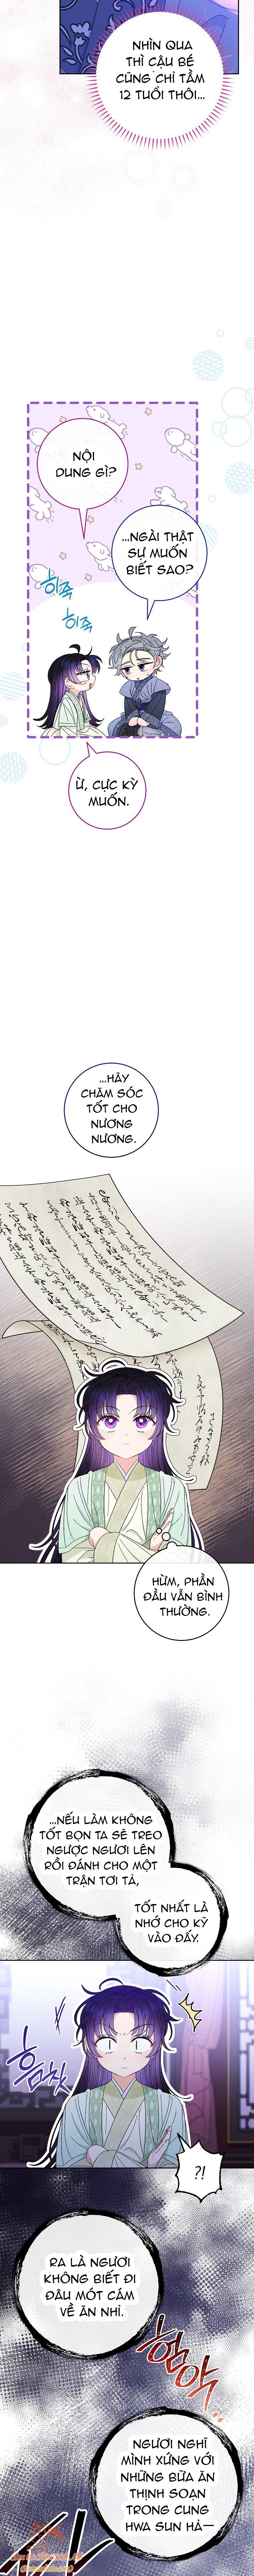 NHÌN QUA
THÌ CẬU BÉ
CŨNG CHỈ TẦM
12 TUỔI THÔI...
NỘI
DUNG GÌ?
...NGÀI THẬT
SỰ MUỐN
BIẾT SAO?
히죽
히죽
Ừ, CỰC KỲ
MUỐN.
...HÃY
CHĂM SÓC
TỐT CHO
NƯƠNG
NƯƠNG.
HỪM, PHẦN
ĐẦU VẪN BÌNH
THƯỜNG.
...NẾU LÀM KHÔNG
TỐT BỌN TA SẼ TREO
NGƯỢC NGƯƠI LÊN
RỒI ĐÁNH CHO MỘT
TRẬN TƠI TẢ,
TỐT NHẤT LÀ
NHỚ CHO KỸ
VÀO ĐẤY.
흠칫
?!
RA LÀ NGƯƠI
KHÔNG BIẾT ĐI
ĐÂU MÓT CÁM
VỀ ĂN NHỈ.
험악
NGƯƠI NGHĨ
MÌNH XỨNG VỚI
NHỮNG BỮA ĂN
THỊNH SOẠN
TRONG CUNG
HWA SUN HẢ—